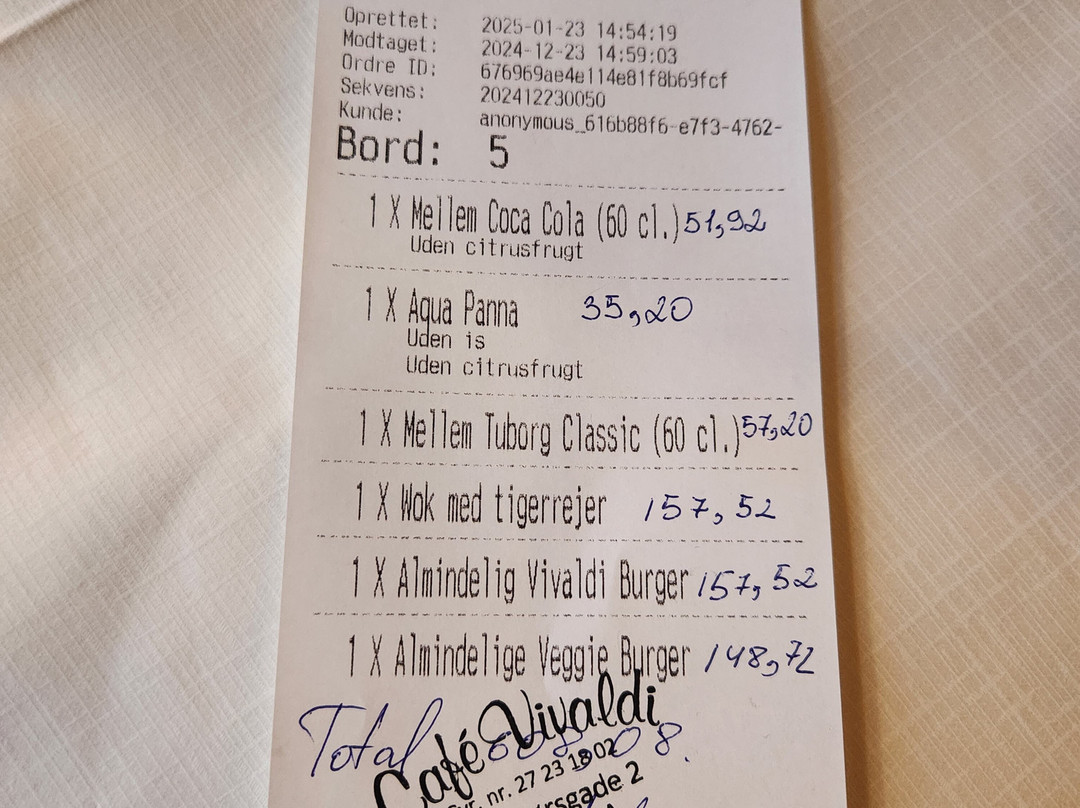 Oprettet: 2025-01-23 14:54:19
Modtaget: 2024-12-23 14:59:03
Ordre ID: 676969ae4e114e81f8b69fcf
Sekvens: 202412230050
Kunde: anonymous_616b88f6-e7f3-4762-
Bord: 5
1 X Mellem Coca Cola (60 cl.) 51,92
Uden citrusfrugt
1 X Aqua Panna 35,20
Uden is
Uden citrusfrugt
1 X Mellem Tuborg Classic (60 cl.) 57,20
1 X Wok med tigerrejer 157,52
1 X Almindelig Vivaldi Burger 157,52
1 X Almindelige Veggie Burger 148,72
Total
Café Vivaldi
nr. 27 23 18 02
rsgade 2